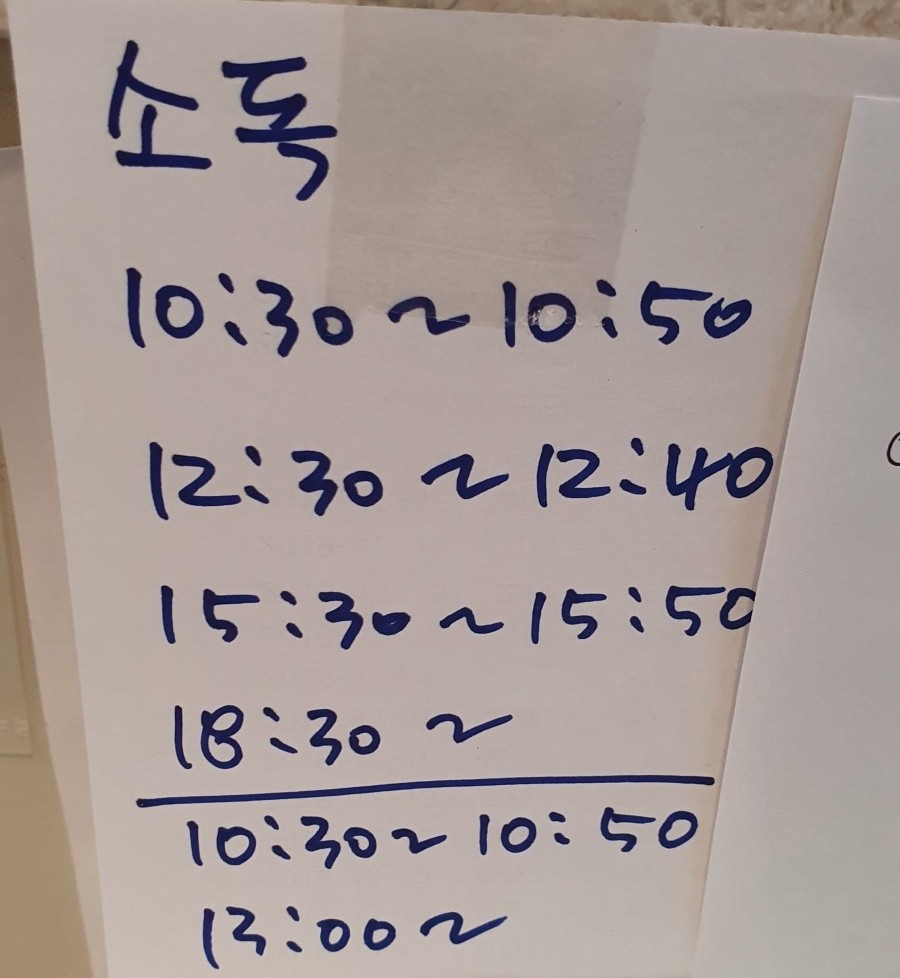 소독
10:30~10:50
12:30~12:40
15:30~15:50
18:30~
10:30~10:50
13:00~